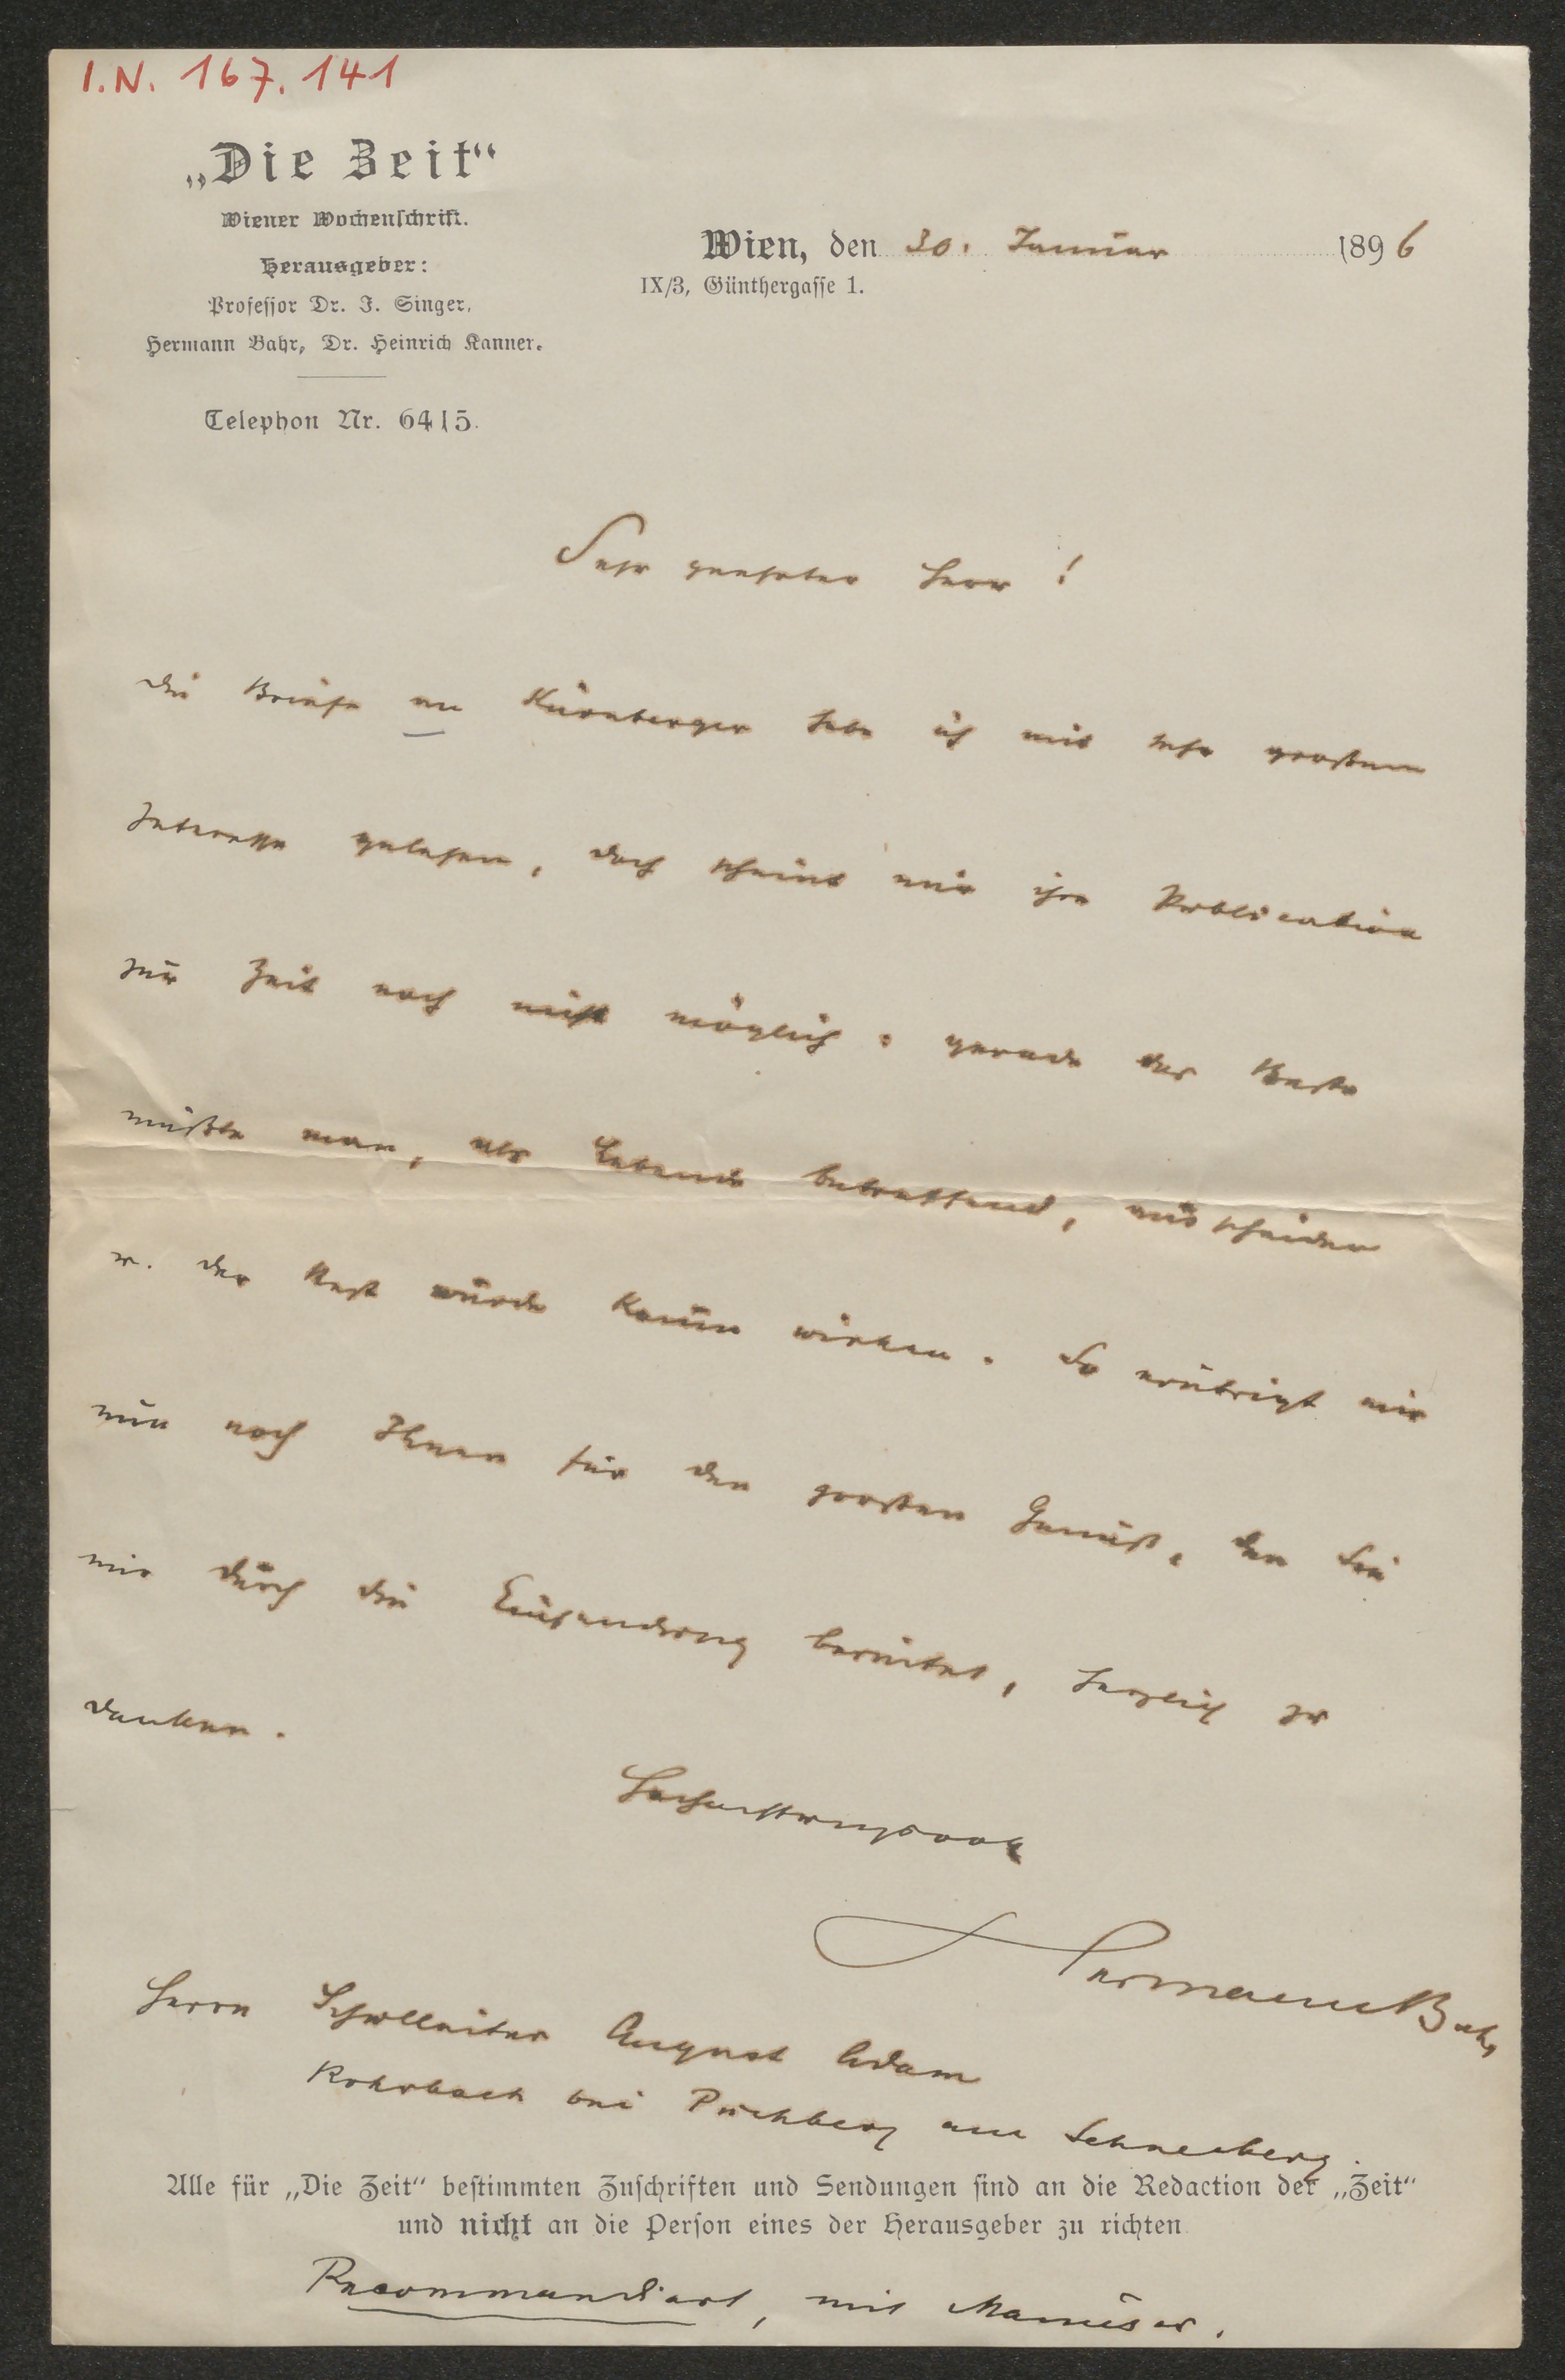 I.N. 167.141
„Die Zeit“
Wiener Wochenschrift.
Herausgeber:
Professor Dr. J. Singer,
Hermann Bahr, Dr. Heinrich Kanner.
Telephon Nr. 6415.
Wien, den 30. Januar 1896
IX/3, Günthergasse 1.
Sehr geehrter Herr!
die Briefe an Kürnberger habe ich mit sehr großem
Interesse gelesen, doch scheint mir ihre Publication
zur Zeit noch nicht möglich: gerade das Beste
müßte man, als Lebende betreffend, ausscheiden
u. der Rest würde kaum wirken. So erübrigt mir
nur noch Ihnen für den großen Genuß, den Sie
mir durch die Einsendung bereitet, herzlich zu
danken.
Hochachtungsvoll
Hermann Bahr
Herrn Schulleiter August Adam
Rohrbach bei Puchberg am Schneeberg.
Alle für „Die Zeit“ bestimmten Zuschriften und Sendungen sind an die Redaction der „Zeit“
und nicht an die Person eines der Herausgeber zu richten.
Recommandirt, mit Manuscr.